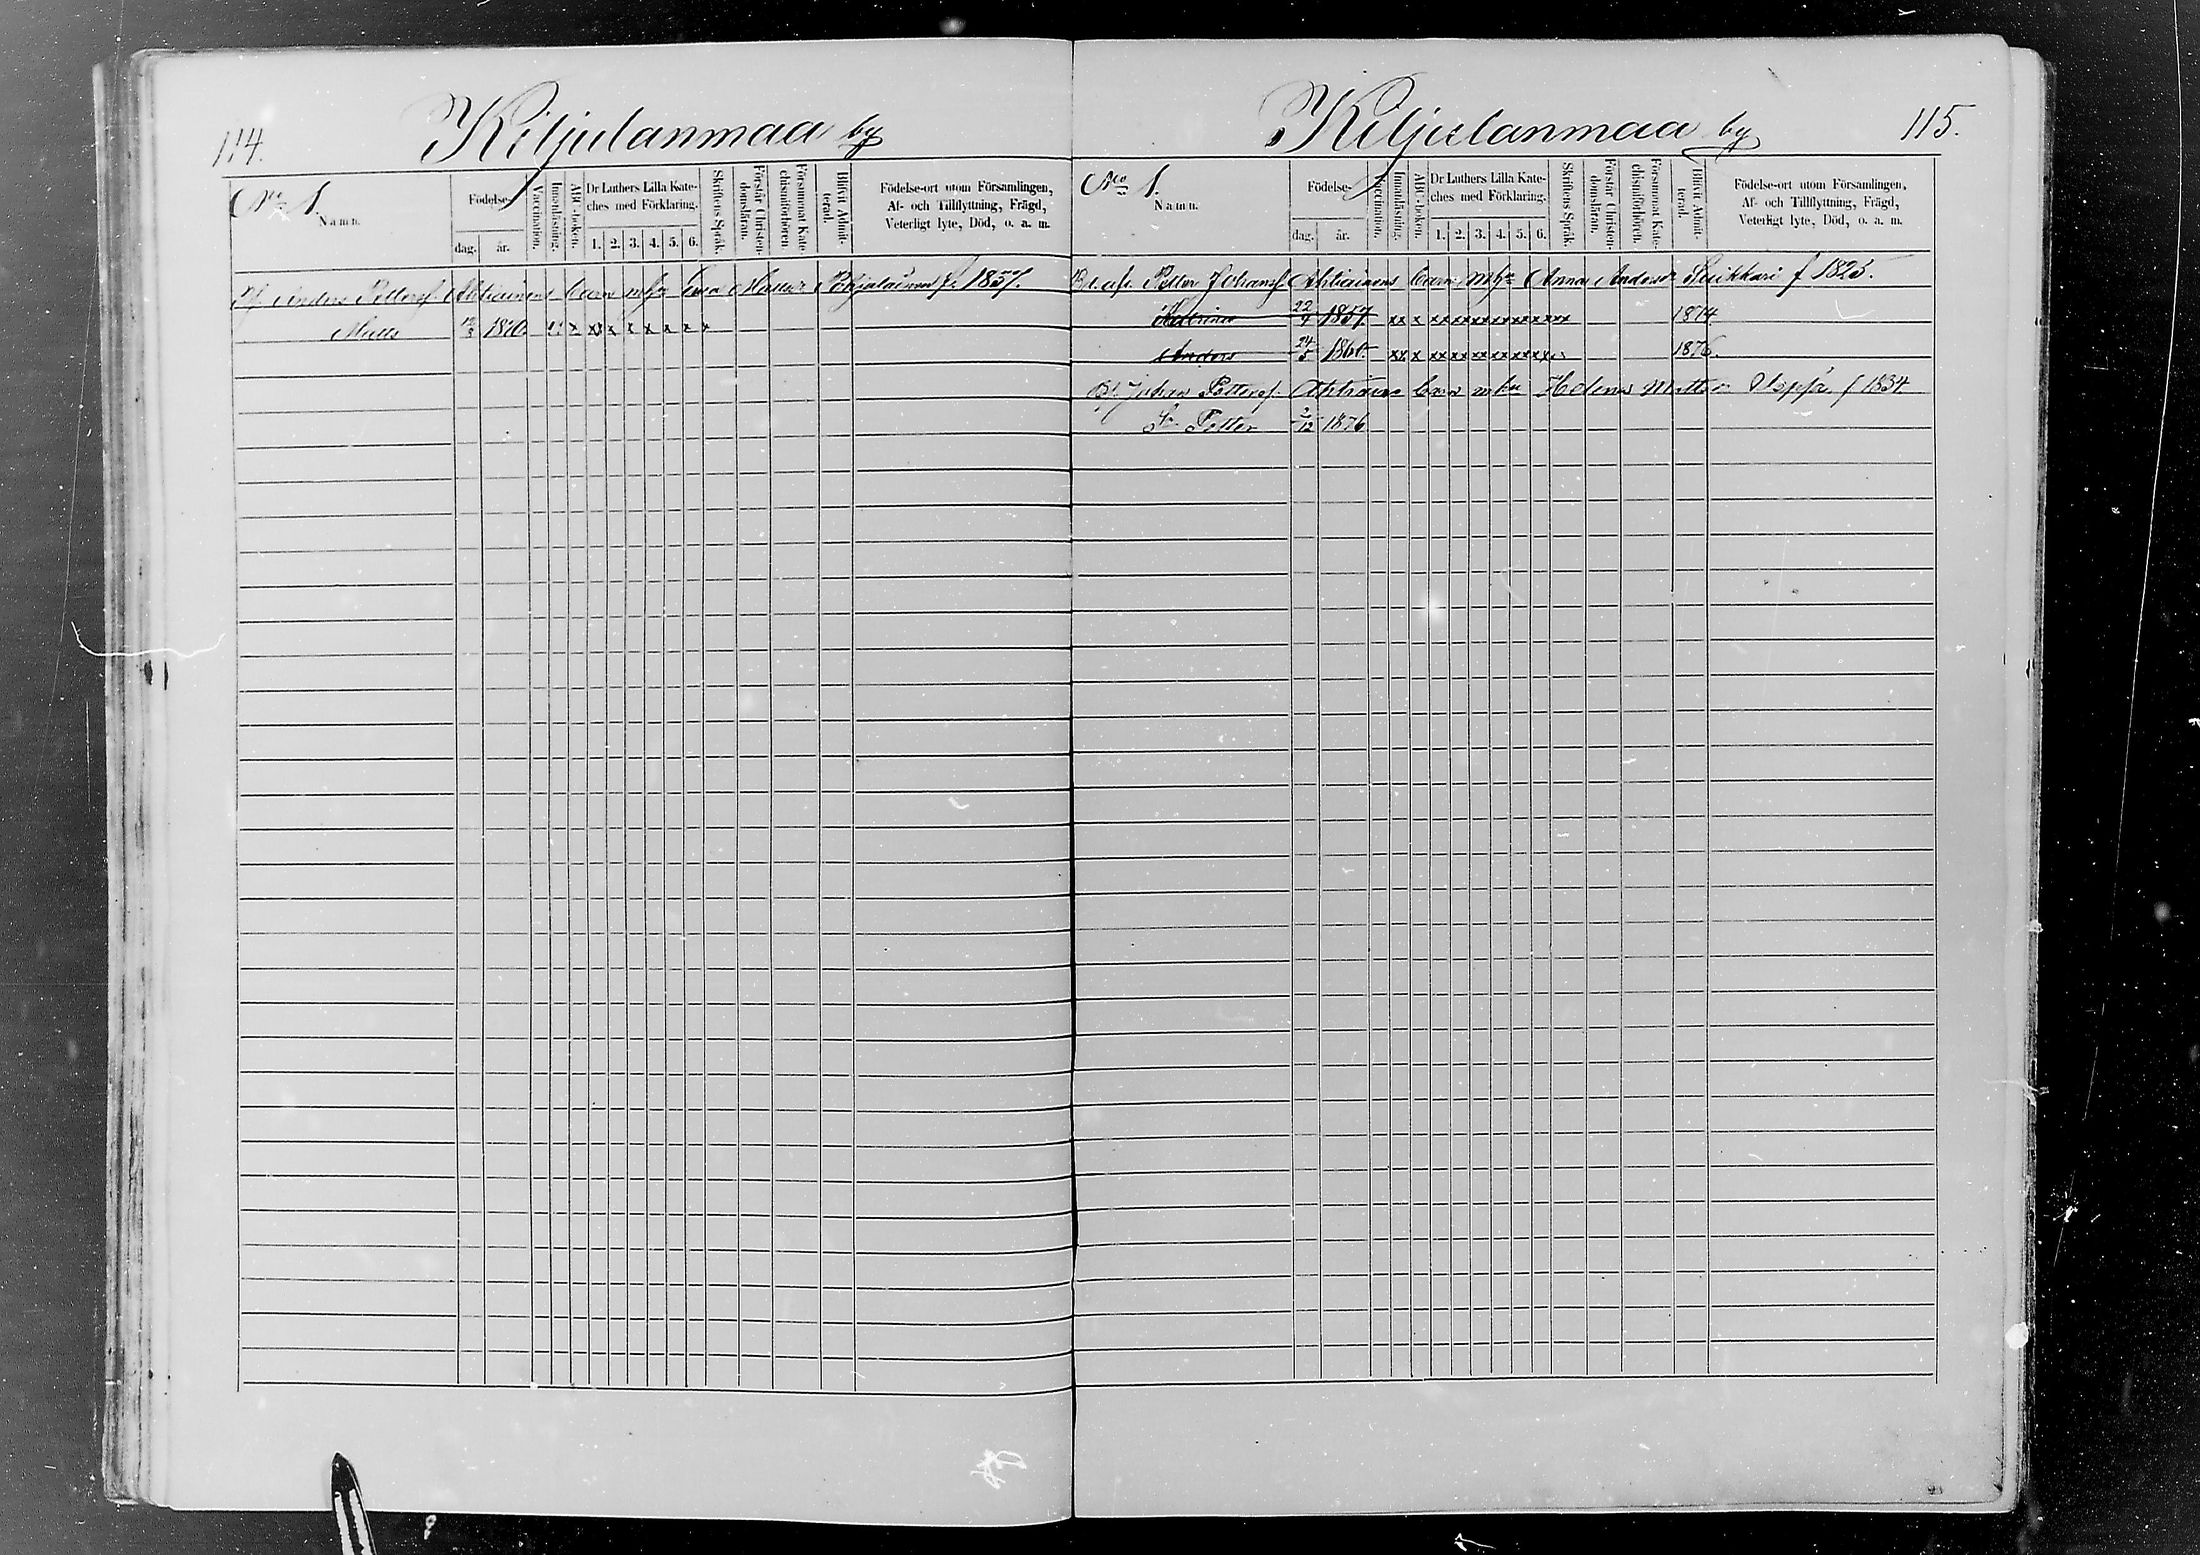 114.
Kiljulanmaa by
No 1.
Namn.
Födelse-
dag. år.
Vaccination.
Innanläsning.
ABC-boken.
Dr Luthers Lilla Kate-
ches med Förklaring.
1. 2. 3. 4. 5. 6.
Skriftens Språk.
Förstår Christen-
domsläran.
Försummat Kate-
chismiförhören.
Blifvit Admit-
terad.
Födelse-ort utom Församlingen,
Af- och Tillflyttning, Frägd,
Veterligt lyte, Död, o. a. m.
Anders Petters. Ahtiainens barn mhu Eva Pohjalainen f. 1837.
Matts 1870. x x x x x x x x
Kiljulanmaa by
115.
No 1.
Namn.
Födelse-
dag. år.
Vaccination.
Innanläsning.
ABC-boken.
Dr Luthers Lilla Kate-
ches med Förklaring.
1. 2. 3. 4. 5. 6.
Skriftens Språk.
Förstår Christen-
domsläran.
Försummat Kate-
chismiförhören.
Blifvit Admit-
terad.
Födelse-ort utom Församlingen,
Af- och Tillflyttning, Frägd,
Veterligt lyte, Död, o. a. m.
Petter Johans. Ahtiainens barn mhu Anna Andersdr f 1825.
Katrina 22/4 1857. xx x xx xx xx xx xx xx xx 1874
Anders 24/5 1860. xx x xx xx xx xx xx xx 1876.
Johan Petters. Ahtiains barn mhu Helena f 1834
Petter 2/12 1876